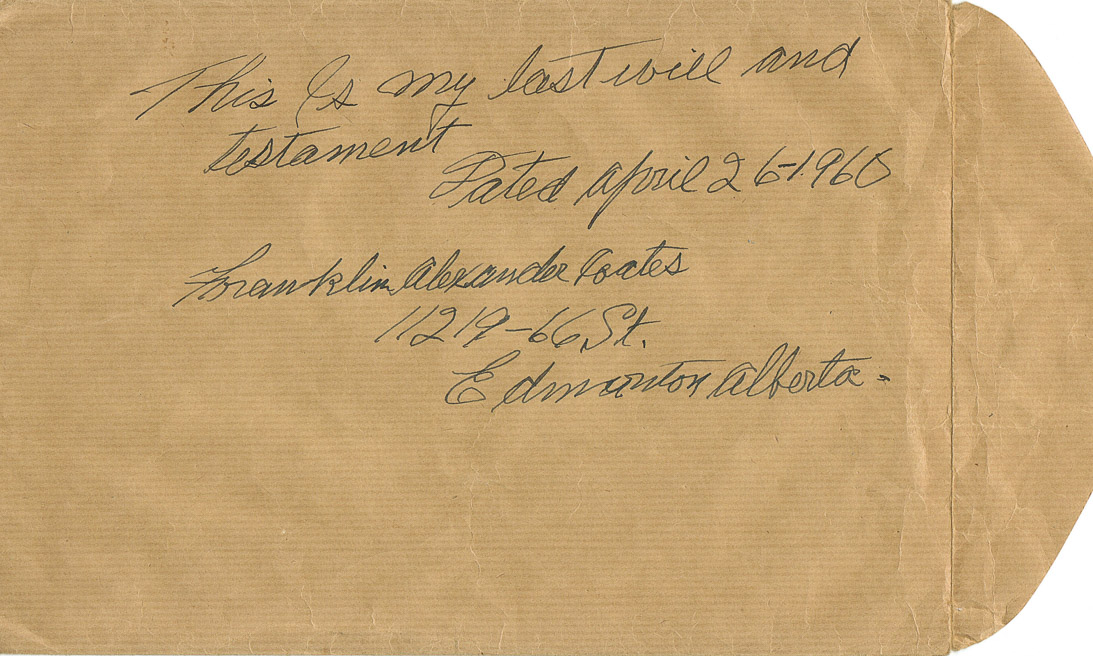 This Is my last will and
testament
Dated April 26-1960
Franklin Alexander Coates
11219-66 St.
Edmonton Alberta-